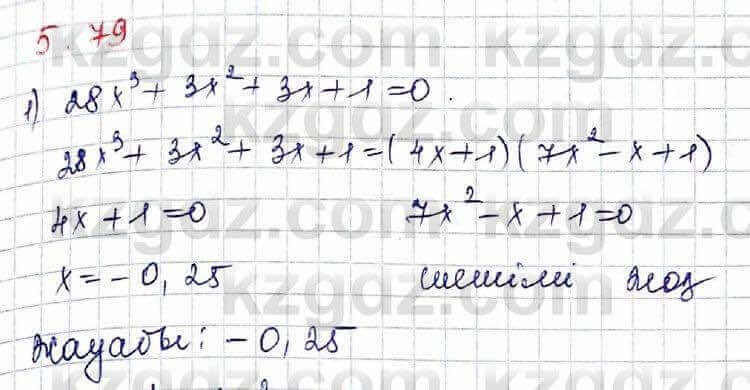 5.79
1) 28x³ + 3x² + 3x + 1 = 0.
28x³ + 3x² + 3x + 1 = (4x+1)(7x² - x + 1)
4x + 1 = 0 7x² - x + 1 = 0
x = - 0,25 шешімі жоқ
жауабы: - 0,25
kzgdz.com